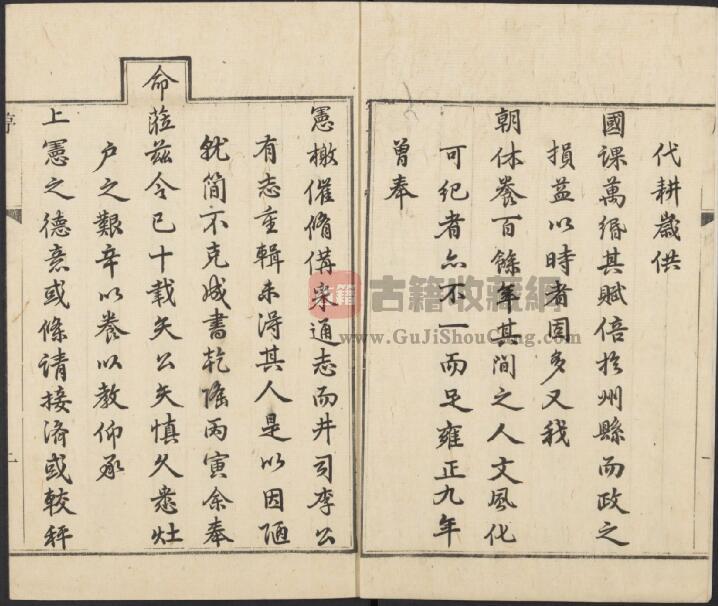 代耕歲供
國課萬緡其賦倍於州縣而政之
損益以時者固多又我
朝休養百餘年其間之人文風化
可紀者亦不一而足雍正九年
曾奉
憲檄催脩備采通志而井司李公
有志重輯未得其人是以因陋
就簡不克成書乾隆丙寅余奉
命蒞茲今已十載矣公矢慎久悉灶
户之艱辛以養以教仰承
上憲之德意或條請接濟或較秤
序
二
古籍
古籍收藏網
www.GuJiShouCang.com